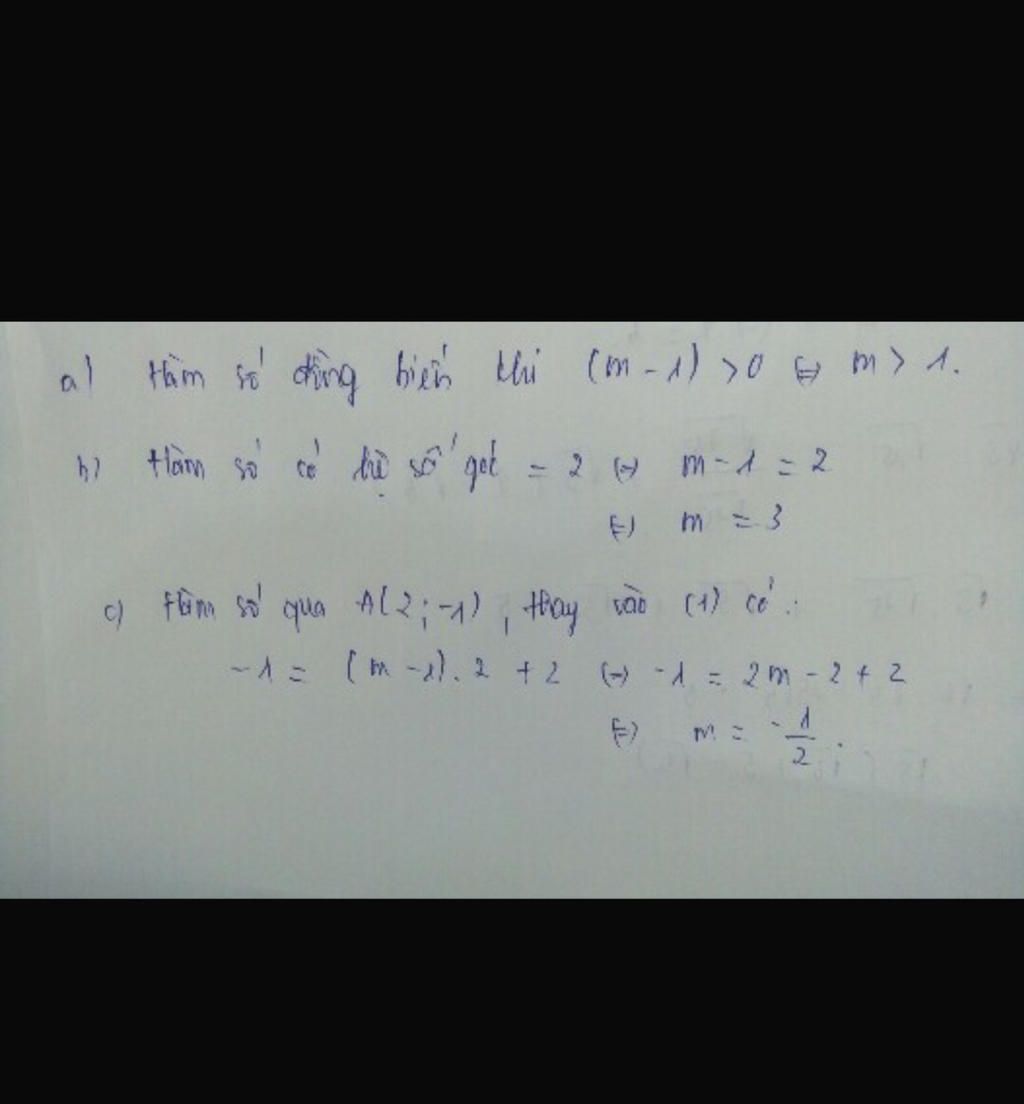 a) Hàm số đồng biến khi (m - 1) > 0 ⇔ m > 1.
b) Hàm số có hệ số góc = 2 ⇔ m - 1 = 2
⇔ m = 3
c) Hàm số qua A(2; -1), thay vào (1) có:
-1 = (m - 1). 2 + 2 ⇔ -1 = 2m - 2 + 2
⇔ m = -1/2.